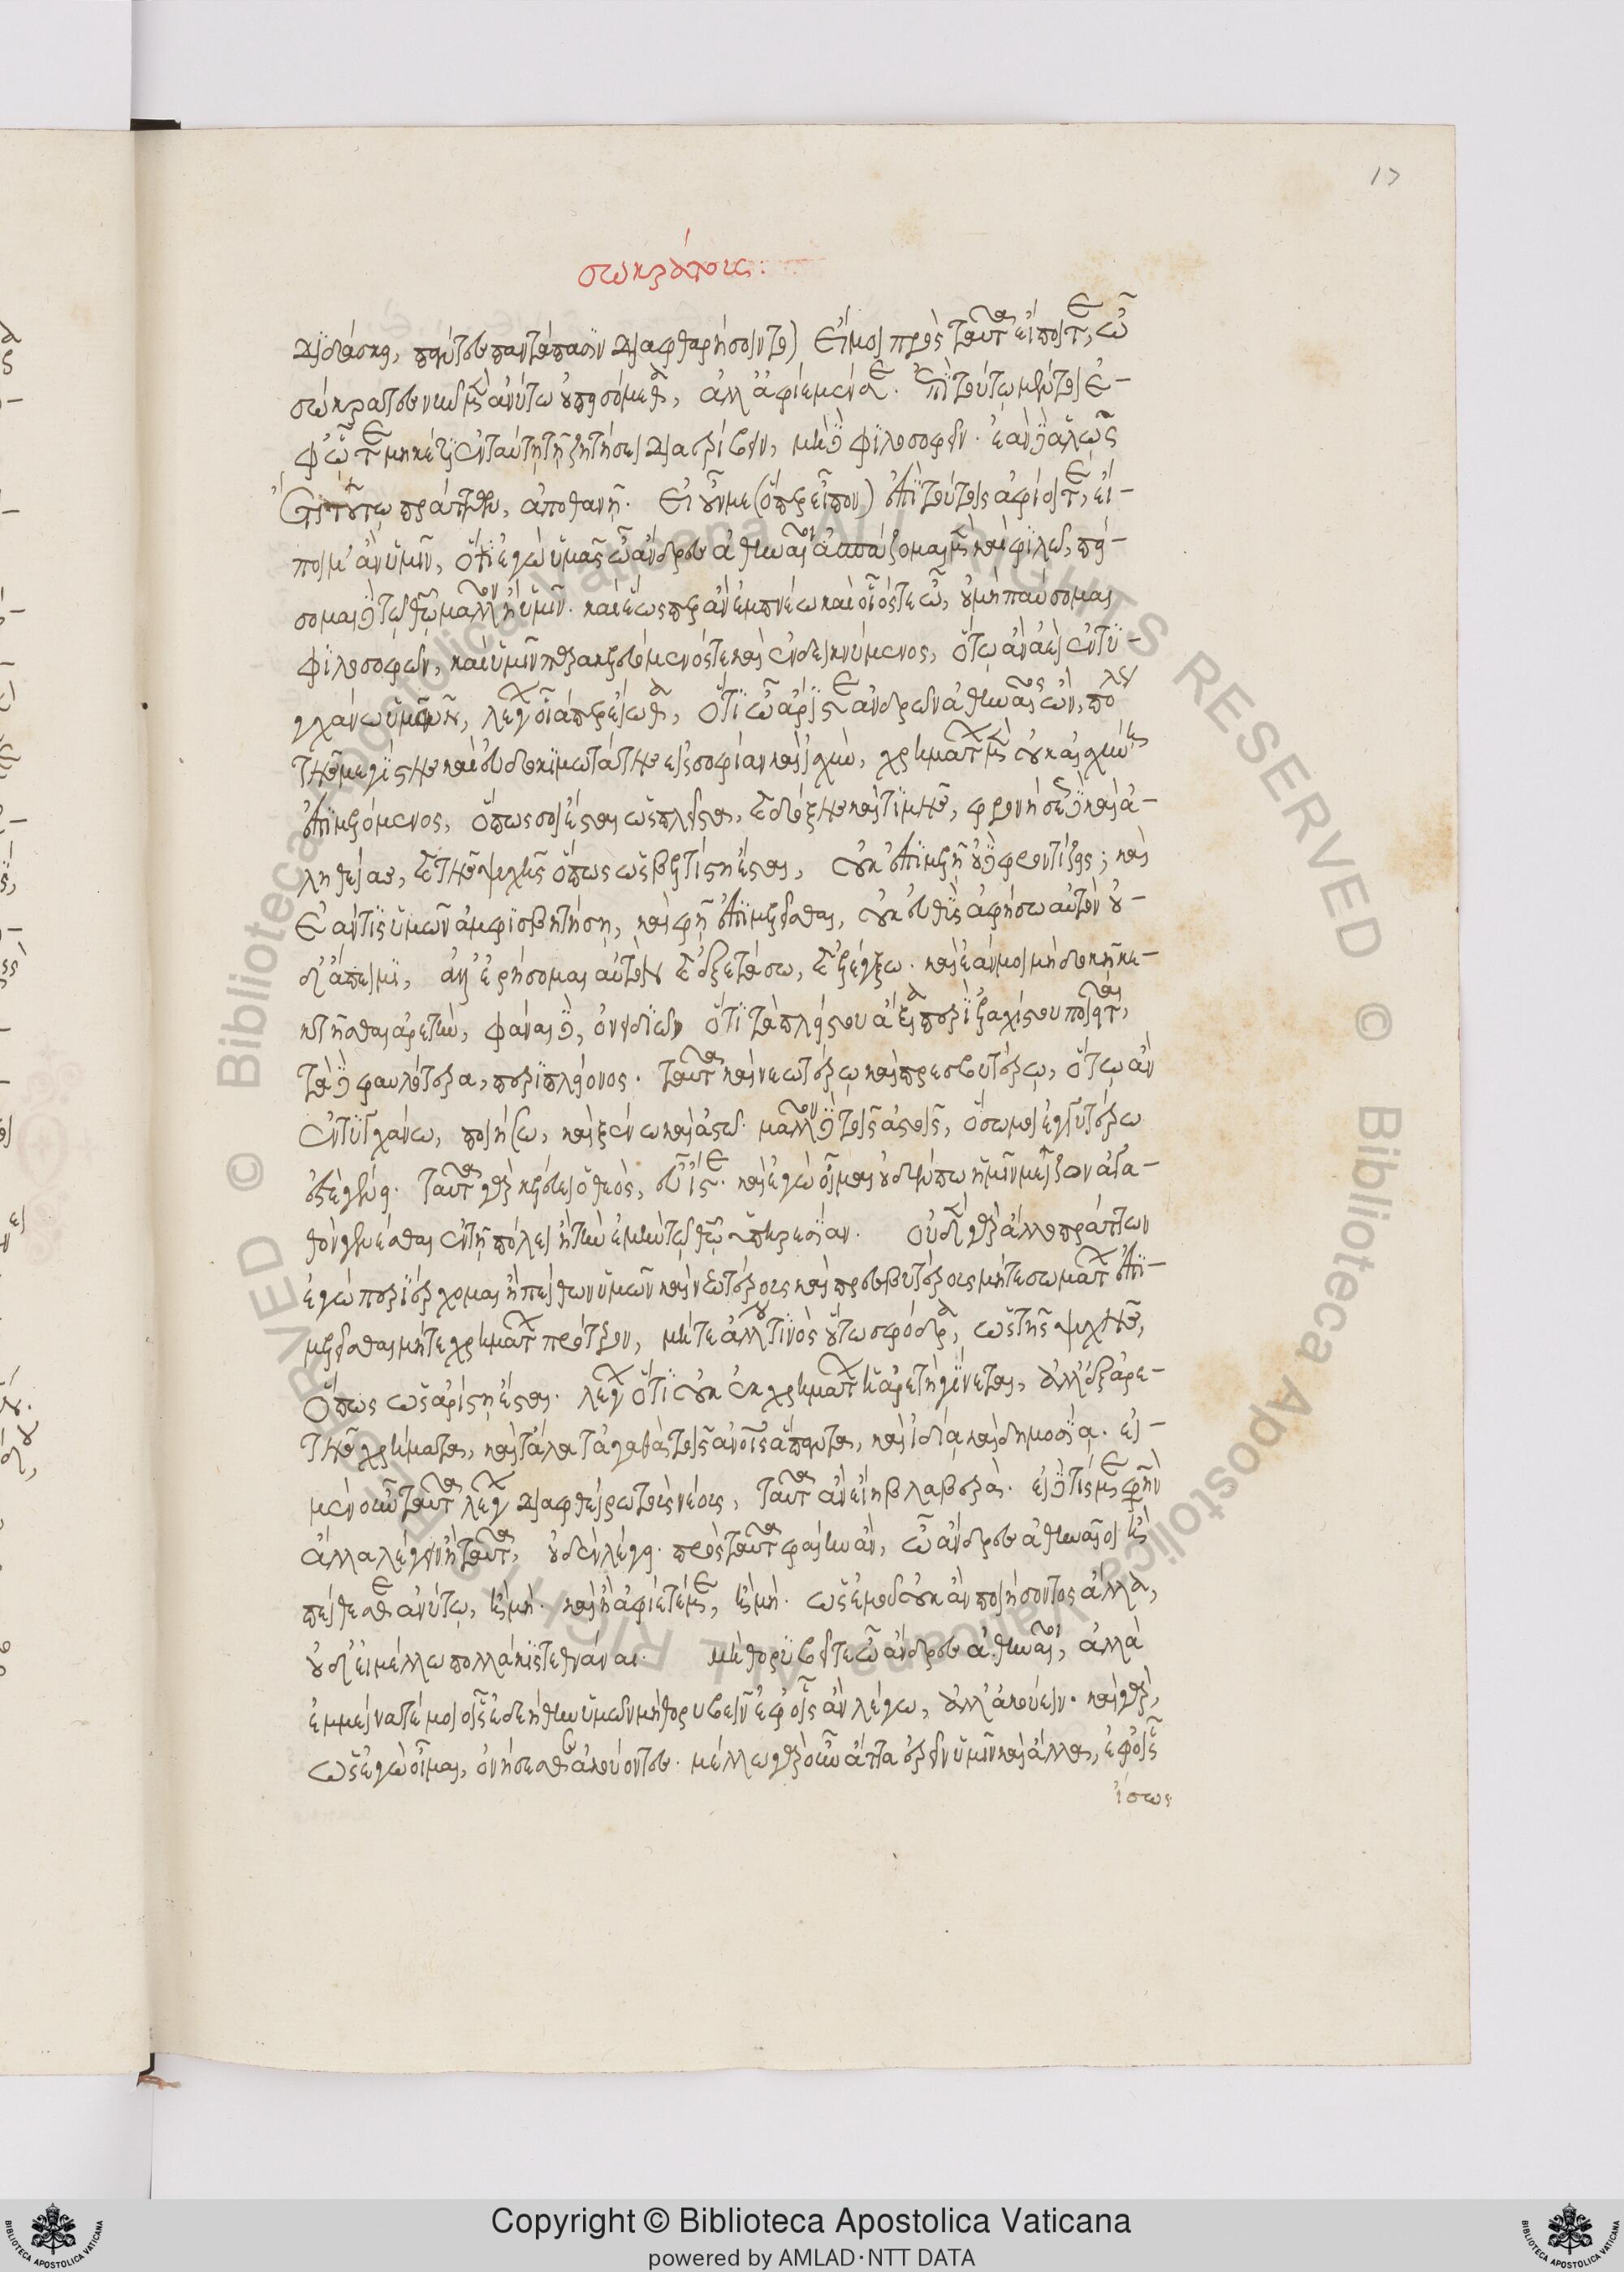 σωκράτους:
διδάσκει, πάντες παντάπασιν διαφθαρήσονται) εἴ μοι πρὸς ταῦτα εἴποιτε, ὦ
σώκρατες νῦν μὲν ἀνύτω οὐ πεισόμεθα, ἀλλ' ἀφίεμέν σε. ἐπὶ τούτῳ μέντοι ἐ-
φ' ᾧτε μηκέτι ἐν ταύτῃ τῇ ζητήσει διατρίβειν, μηδὲ φιλοσοφεῖν. ἐὰν δὲ ἁλῷς
ἔτι τοῦτο πράττων, ἀποθανῇ. εἰ οὖν με (ὅπερ εἶπον) ἐπὶ τούτοις ἀφίοιτε, εἴ-
ποιμ' ἂν ὑμῖν, ὅτι ἐγὼ ὑμᾶς ὦ ἄνδρες ἀθηναῖοι ἀσπάζομαι μὲν καὶ φιλῶ, πεί-
σομαι δὲ τῷ θεῷ μᾶλλον ἢ ὑμῖν. καὶ ἕωσπερ ἂν ἐμπνέω καὶ οἷός τε ὦ, οὐ μὴ παύσομαι
φιλοσοφῶν, καὶ ὑμῖν παρακελευόμενός τε καὶ ἐνδεικνύμενος, ὅτῳ ἂν ἀεὶ ἐντυ-
γχάνω ὑμῶν, λέγων οἷάπερ εἴωθα, ὅτι ὦ ἄριστε ἀνδρῶν ἀθηναῖος ὤν, πόλεως
τῆς μεγίστης καὶ εὐδοκιμωτάτης εἰς σοφίαν καὶ ἰσχύν, χρημάτων μὲν οὐκ αἰσχύνῃ
ἐπιμελόμενος, ὅπως σοι ἔσται ὡς πλεῖστα, καὶ δόξης καὶ τιμῆς, φρονήσεως δὲ καὶ ἀ-
ληθείας, καὶ τῆς ψυχῆς ὅπως ὡς βελτίστη ἔσται, οὐκ ἐπιμελῇ οὐδὲ φροντίζεις; καὶ
ἐάν τις ὑμῶν ἀμφισβητήσῃ, καὶ φῇ ἐπιμελεῖσθαι, οὐκ εὐθὺς ἀφήσω αὐτὸν οὐ-
δ' ἄπειμι, ἀλλ' ἐρήσομαι αὐτὸν καὶ ἐξετάσω, καὶ ἐλέγξω. καὶ ἐὰν μοι μὴ δοκῇ κε-
κτῆσθαι ἀρετὴν, φάναι δὲ, ὀνειδιῶ ὅτι τὰ πλείστου ἄξια περὶ ἐλαχίστου ποιεῖται,
τὰ δὲ φαυλότερα, περὶ πλείονος. ταῦτα καὶ νεωτέρῳ καὶ πρεσβυτέρῳ, ὅτῳ ἂν
ἐντυγχάνω, ποιήσω, καὶ ξένῳ καὶ ἀστῷ. μᾶλλον δὲ τοῖς ἀστοῖς, ὅσῳ μοι ἐγγυτέρω
ἐστὲ γένει. ταῦτα γὰρ κελεύει ὁ θεὸς, εὖ ἴστε. καὶ ἐγὼ οἶμαι οὐδέν πω ὑμῖν μεῖζον ἀγα-
θὸν γενέσθαι ἐν τῇ πόλει ἢ τὴν ἐμὴν τῷ θεῷ ὑπηρεσίαν. οὐδὲν γὰρ ἄλλο πράττων
ἐγὼ περιέρχομαι ἢ πείθων ὑμῶν καὶ νεωτέρους καὶ πρεσβυτέρους μήτε σωμάτων ἐπι-
μελεῖσθαι μήτε χρημάτων πρότερον, μήτε ἄλλου τινὸς οὕτω σφόδρα, ὡς τῆς ψυχῆς,
ὅπως ὡς ἀρίστη ἔσται. λέγων ὅτι οὐκ ἐκ χρημάτων ἡ ἀρετὴ γίνεται, ἀλλ' ἐξ ἀρε-
τῆς χρήματα, καὶ τἄλλα τἀγαθὰ τοῖς ἀνοις ἅπαντα, καὶ ἰδίᾳ καὶ δημοσίᾳ. εἰ
μὲν οὖν ταῦτα λέγων διαφθείρω τοὺς νέους, ταῦτ' ἂν εἴη βλαβερά. εἰ δέ τίς μέ φησιν
ἄλλα λέγειν ἢ ταῦτα, οὐδὲν λέγει. πρὸς ταῦτα φαίην ἂν, ὦ ἄνδρες ἀθηναῖοι ἢ
πείθεσθε ἀνύτῳ, ἢ μή. καὶ ἢ ἀφίετέ με, ἢ μή. ὡς ἐμοῦ οὐκ ἂν ποιήσοντος ἄλλα,
οὐδ' εἰ μέλλω πολλάκις τεθνάναι. μὴ θορυβεῖτε ὦ ἄνδρες ἀθηναῖοι, ἀλλὰ
ἐμμείνατέ μοι οἷς ἐδεήθην ὑμῶν μὴ θορυβεῖν ἐφ' οἷς ἂν λέγω, ἀλλ' ἀκούειν. καὶ γὰρ,
ὡς ἐγὼ οἶμαι, ὀνήσεσθε ἀκούοντες. μέλλω γὰρ οὖν ἄττα ἐρεῖν ὑμῖν καὶ ἄλλα, ἐφ' οἷς
ἴσως
17
Copyright © Biblioteca Apostolica Vaticana
powered by AMLAD·NTT DATA